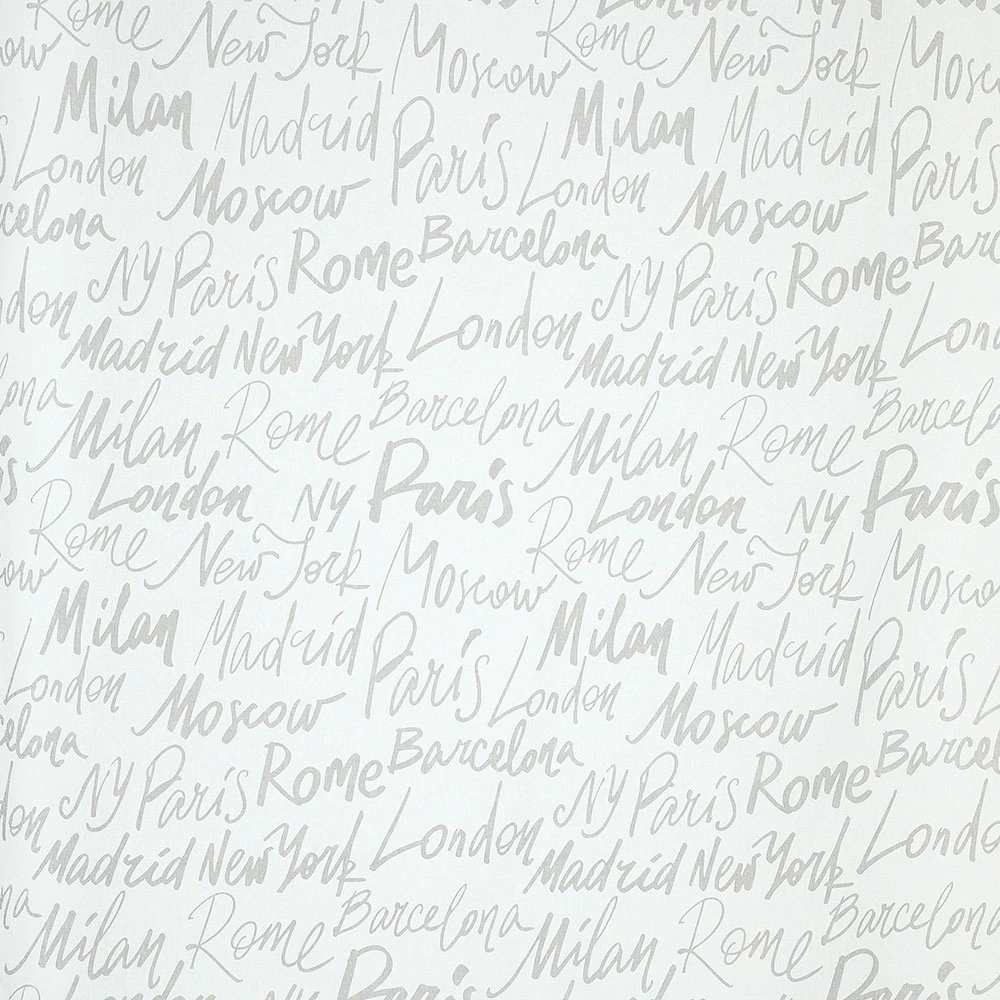 Rome London NY Paris
ow New York Moscow Rome New York Mosc
Milan Madrid Paris Milan Madrid Paris
London Moscow London Moscow
celona NY Paris Rome Barcelona NY Paris Rome Bar
don Madrid New York London Madrid New York Lon
lona Milan Rome Barcelona Milan Rome Barcelo
is London NY Paris London NY Paris
Rome New York Moscow Rome New York Mosco
ow Milan Madrid Paris Milan Madrid Paris
London Moscow London Moscow
celona NY Paris Rome Barcelona NY Paris Rome Barcel
don Madrid New York London Madrid New York Londo
na Milan Rome Barcelona Milan Rome Barcelona
London Paris London Paris